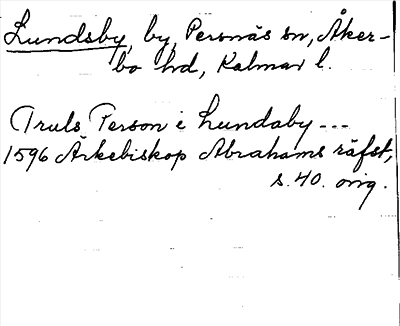 Lundsby, by, Persnäs sn, Åker-
bo hd, Kalmar l.
Truls Person i Lundaby ---
1596 Ärkebiskop Abrahams räfst,
s. 40. orig.